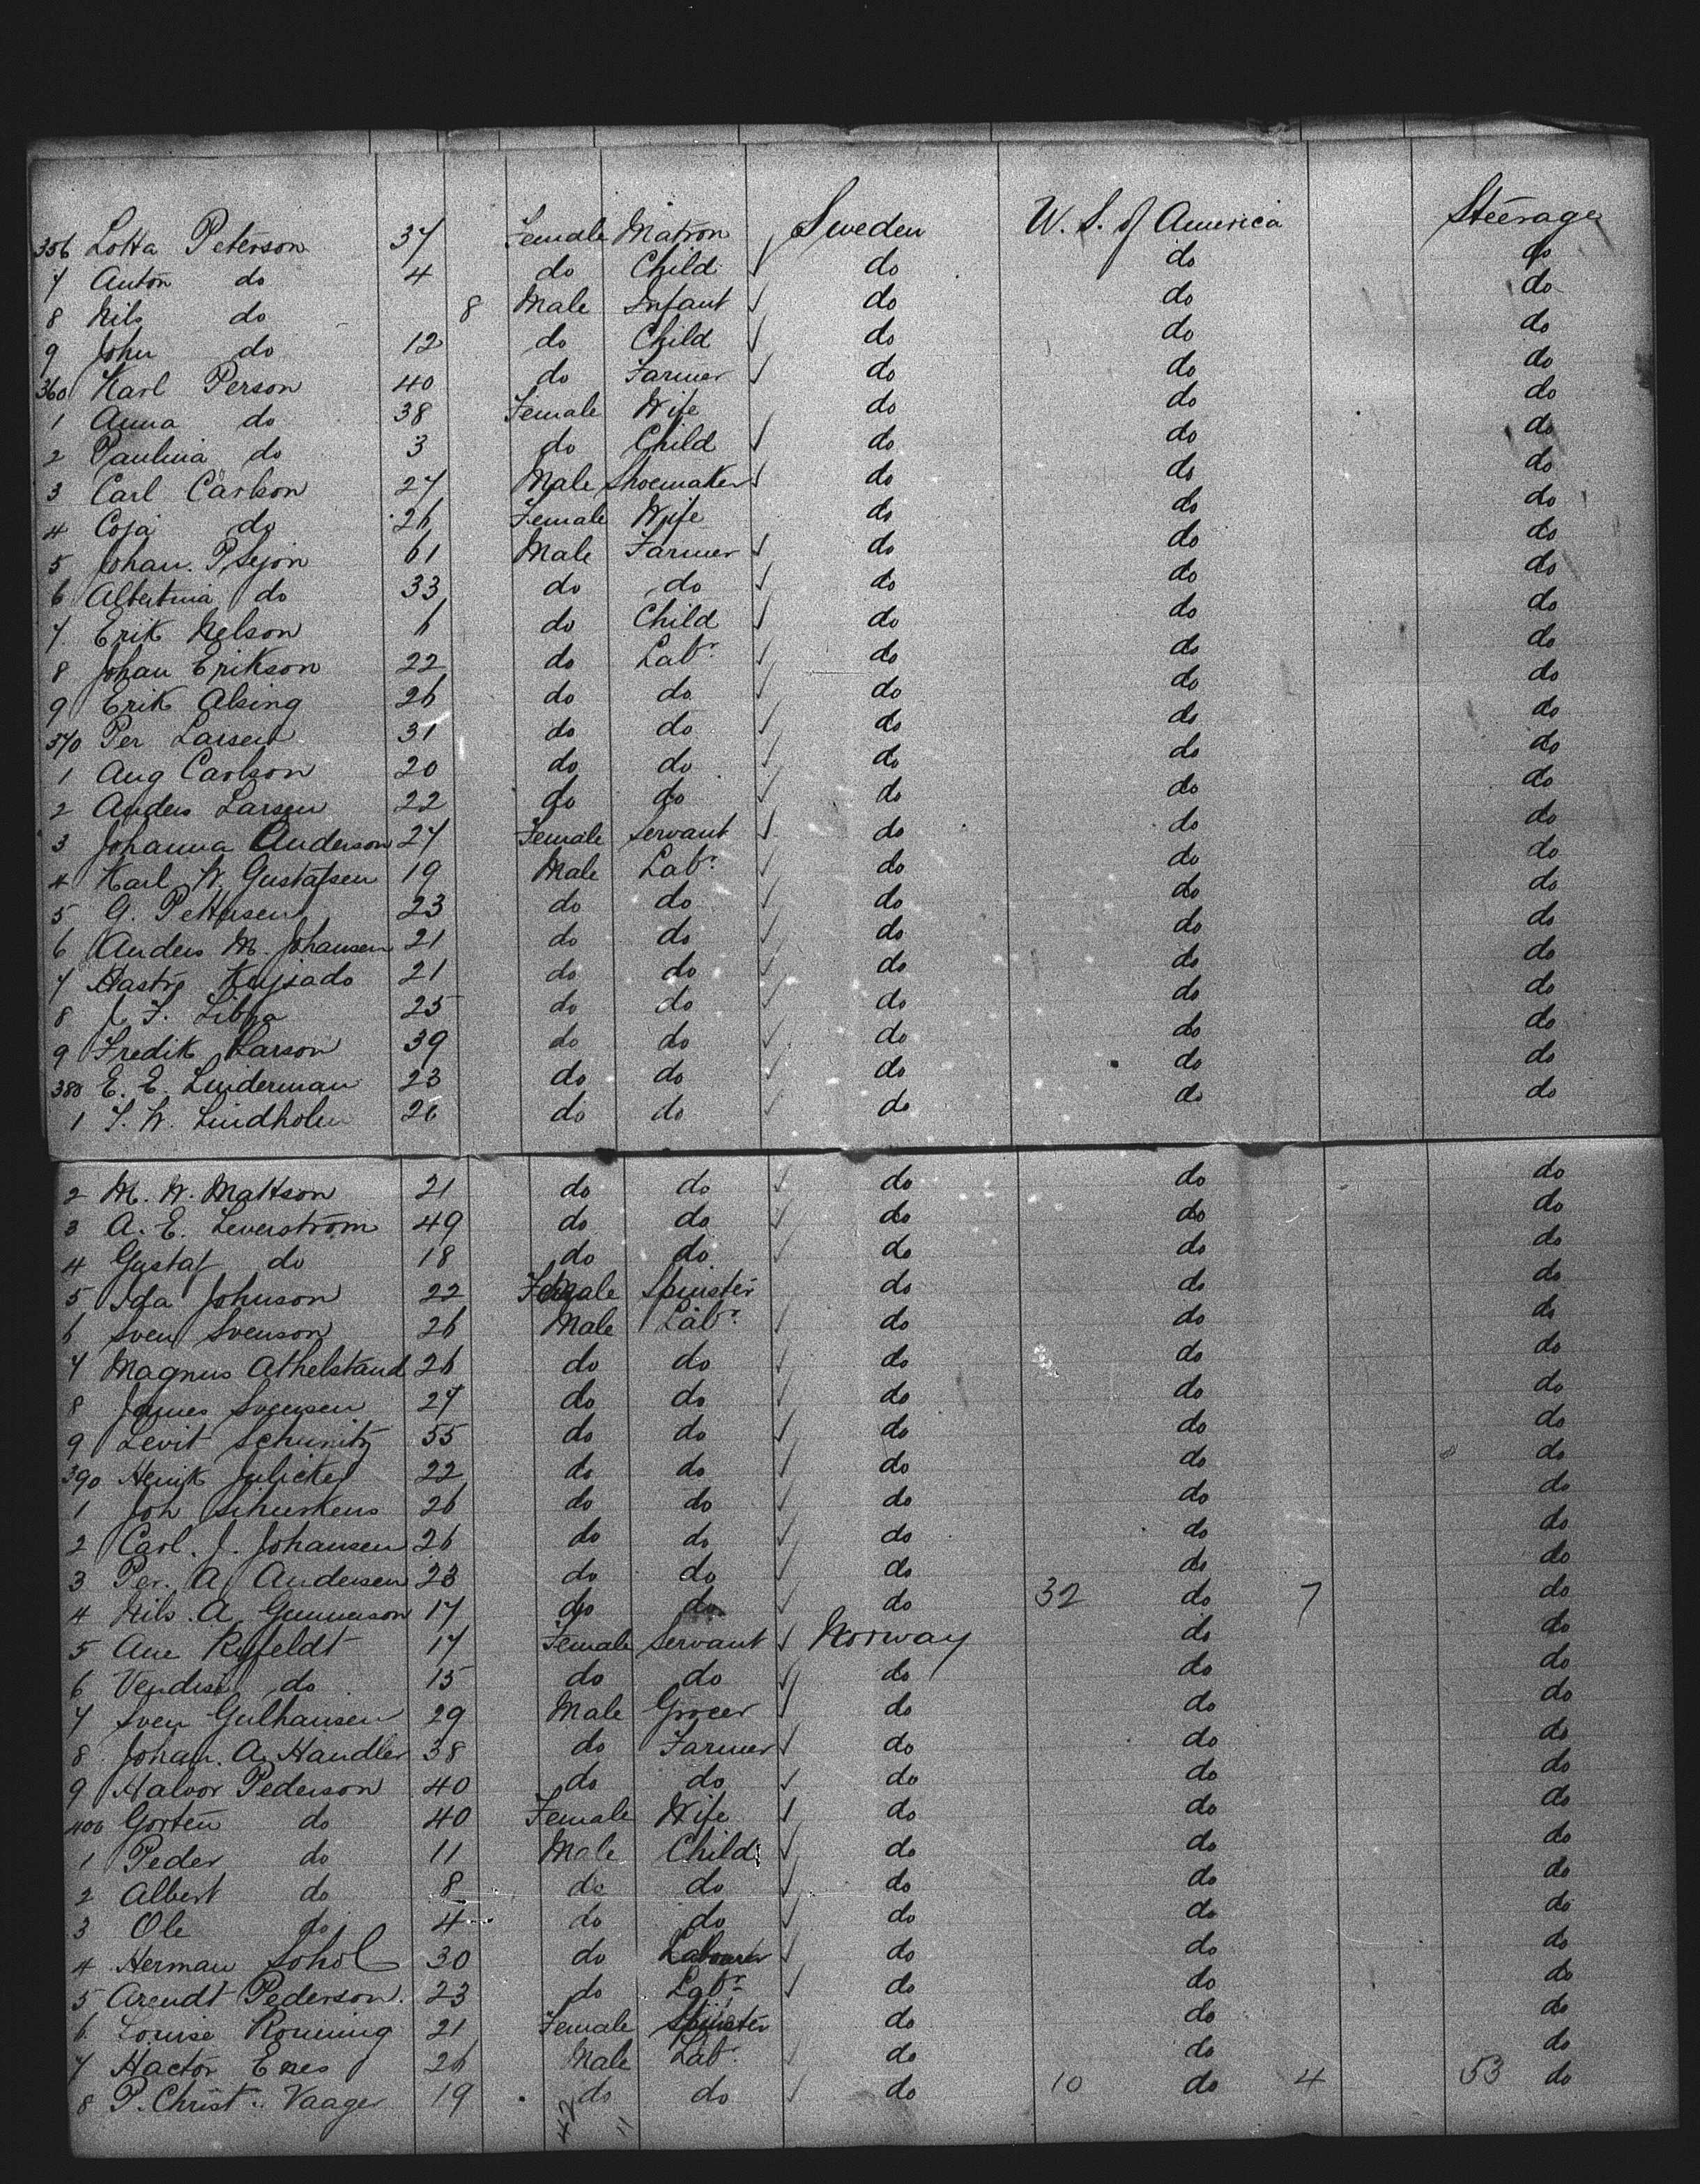 356 Lotta Peterson 37 Female Matron Sweden U. S. of America Steerage
7 Anton do 4 do Child do do do
8 Nils do 8 Male Infant do do do
9 John do 12 do Child do do do
360 Karl Person 40 do Farmer do do do
1 Anna do 38 Female Wife do do do
2 Paulina do 3 do Child do do do
3 Carl Carlson 27 Male Shoemaker do do do
4 do 26 Female Wife do do do
5 Johan. P. 61 Male Farmer do do do
6 Albertina do 33 do do do do do
7 Erik Nelson 6 do Child do do do
8 Johan Erikson 22 do Labr. do do do
9 Erik Alsing 26 do do do do do
370 Per Larsen 31 do do do do do
1 Aug Carlson 20 do do do do do
2 Anders Larsen 22 do do do do do
3 Johanna Anderson 27 Female Servant do do do
4 Karl W. Gustafsen 19 Male Labr. do do do
5 G. Pettersen 23 do do do do do
6 Anders M. Johansen 21 do do do do do
7 21 do do do do do
8 J. F. 25 do do do do do
9 Fredik Larson 39 do do do do do
380 E. E. Linderman 23 do do do do do
1 Lindholm 26 do do do do do
2 M. W. Mattson 21 do do do do do
3 A. E. Leverström 49 do do do do do
4 Gustaf do 18 do do do do do
5 Ida Johnson 22 Female Spinster do do do
6 Sven Svenson 26 Male Labr. do do do
7 Magnus Athelstand 26 do do do do do
8 James Svensen 27 do do do do do
9 Levit Schmitz 55 do do do do do
390 Henik 22 do do do do do
1 Joh 26 do do do do do
2 Carl. J. Johansen 26 do do do do do
3 Per. A. Andersen 23 do do do do do
4 Nils. A. Gunnerson 17 do do do 32 do 7 do
5 Ane Ryfeldt 17 Female Servant Norway do do
6 do 15 do do do do do
7 Sven Gulhausen 29 Male Grocer do do do
8 Johan. A. Handler 38 do Farmer do do do
9 Halvor Pederson 40 do do do do do
400 Gorten do 40 Female Wife do do do
1 Peder do 11 Male Child do do do
2 Albert do 8 do do do do do
3 Ole do 4 do do do do do
4 Herman Sohol 30 do Labourer do do do
5 Arendt Pederson. 23 do Labr. do do do
6 Louise Ronning 21 Female Spinster do do do
7 Hactor Enes 26 Male Labr. do do do
8 P. Christ. Vaager 19 do do do 10 do 4 53 do
42 11